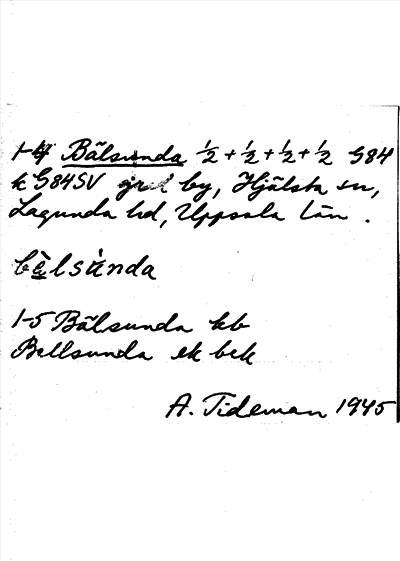 1-4 Bälsunda ½+½+½+½ G84
k G84SV jrd by, Hjälsta sn,
Lagunda hd, Uppsala län.
bèlsúnda
1-5 Bälsunda kb
Bellsunda ek bek
A. Tideman 1945